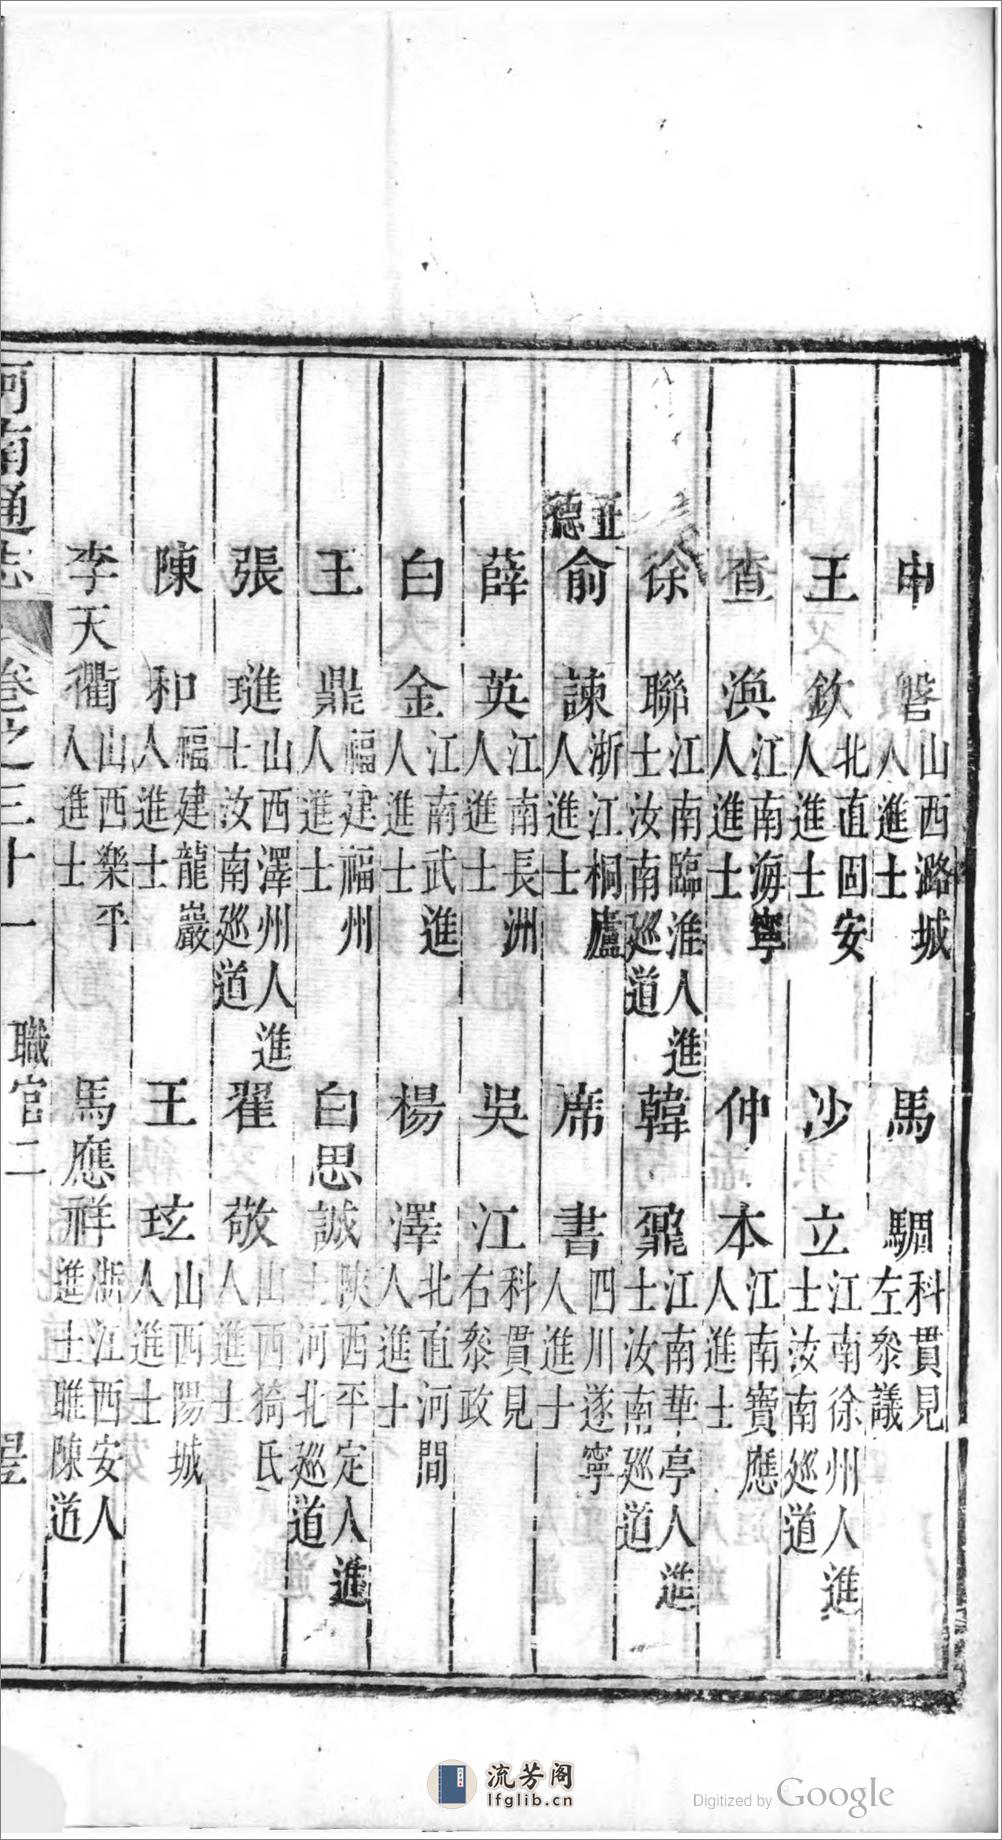 申 磐山西潞城人進士 馬 駉科貫見左叅議
王 欽北直固安人進士 沙 立江南徐州人進士汝南廵道
查 渙江南海寧人進士 仲 本江南寶應人進士
徐 聯江南臨淮人進士汝南廵道 韓 鼐江南華亭人進士汝南廵道
正德
俞 諫浙江桐廬人進士 席 書四川遂寧人進士
薛 英江南長洲人進士 吳 江科貫見右叅政
白 金江南武進人進士 楊 澤北直河間人進士
王 鼎福建福州人進士 白思誠陝西平定人進士河北廵道
張 璡山西澤州人進士汝南廵道 翟 敬山西猗氏人進士
陳 和福建龍巖人進士 王 玹山西陽城人進士
李天衢山西樂平人進士 馬應祥浙江西安人進士睢陳道
河南通志 卷之三十一 職官二
流芳阁
lfglib.cn
Digitized by Google